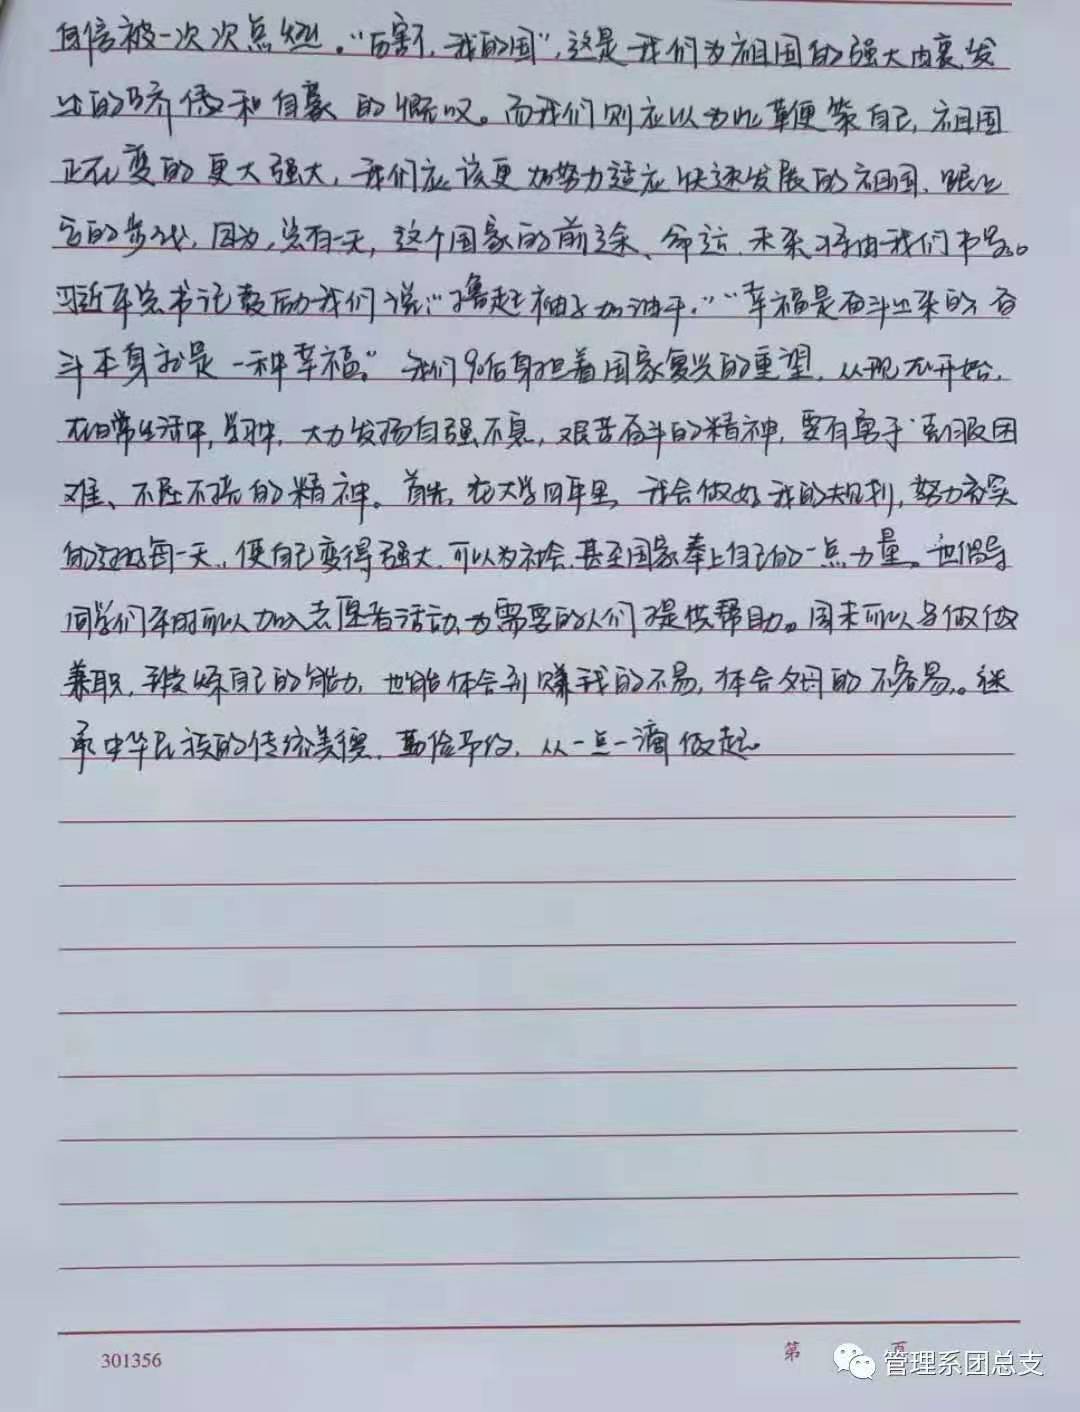 自信被一次次点燃。"厉害了，我的国"，这是我们为祖国的强大由衷发
出的骄傲和自豪的慨叹。而我们则应以为此鞭策自己，祖国
正在变的更大强大，我们应该更加努力适应快速发展的祖国，跟上
它的步伐，因为，总有一天，这个国家的前途、命运、未来将由我们书写。
习近平总书记鼓励我们说："撸起袖子加油干，""幸福是奋斗出来的，奋
斗本身就是一种幸福。"我们90后身担着国家复兴的重望，从现在开始，
在日常生活中，学习中，大力发扬自强不息，艰苦奋斗的精神，要有勇于克服困
难、不屈不挠的精神。首先，在大学四年里，我会做好我的规划，努力充实
的过好每一天，使自己变得强大，可以为社会，甚至国家奉上自己的一点力量。也倡导
同学们平时可以加入志愿者活动，为需要的人们提供帮助。周末可以多做做
兼职，锻炼自己的能力，也能体会到赚钱的不易，体会父母的不容易。继
承中华民族的传统美德，勤俭节约，从一点一滴做起。
301356 第 页
管理系团总支